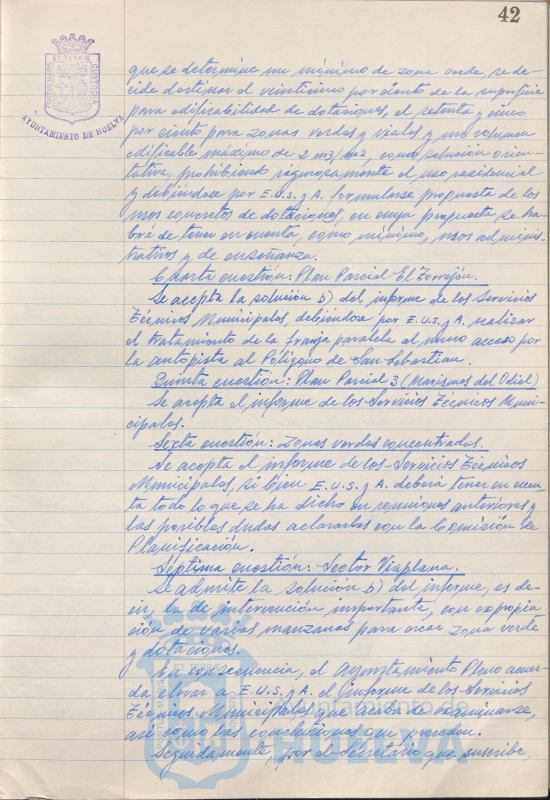 42
PORTUS MARIS ET TERRAE CUSTODIA
AYUNTAMIENTO DE HUELVA
que se determine un mínimo de zona verde, se de-
cide destinar el veinticinco por ciento de la superficie
para edificabilidad de dotaciones, el setenta y cinco
por ciento para zonas verdes y viales y un volumen
edificable máximo de 2 m3/m2, como solución orien-
tativa, prohibiendo rigurosamente el uso residencial
y debiéndose por E.U.S. y A. formularse propuesta de los
usos concretos de dotaciones, en cuya propuesta se ha-
brá de tener en cuenta, como mínimo, usos adminis-
trativos y de enseñanza.
Cuarta cuestión: Plan Parcial El Torrejón.
Se acepta la solución b) del informe de los Servicios
Técnicos Municipales, debiéndose por E.U.S. y A. realizar
el tratamiento de la franja paralela al nuevo acceso por
la autopista al Polígono de San Sebastian.
Quinta cuestión: Plan Parcial 3 (Marismas del Odiel)
Se acepta el informe de los Servicios Técnicos Muni-
cipales.
Sexta cuestión: Zonas verdes concentradas.
Se acepta el informe de los Servicios Técnicos
Municipales, si bien E.U.S. y A. deberá tener en cuen-
ta todo lo que se ha dicho en reuniones anteriores y
las posibles dudas aclararlas con la Comisión de
Planificación.
Séptima cuestión: Sector Viaplana.
Se admite la solución b) del informe, es de-
cir, la de intervención importante, con expropia-
ción de varias manzanas para crear zona verde
y dotaciones.
En consecuencia, el Ayuntamiento Pleno acuer-
da elevar a E.U.S. y A. el informe de los Servicios
Técnicos Municipales que acaba de examinarse,
así como las conclusiones que preceden.
Seguidamente, por el Secretario que suscribe,
Ayuntamiento de
HUELVA